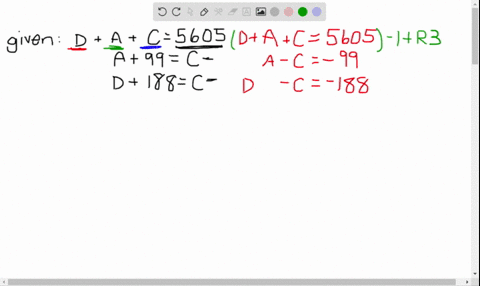 given: D + A + C = 5605 (D + A + C = 5605) -1 + R3
A + 99 = C - A - C = - 99
D + 188 = C - D - C = - 188